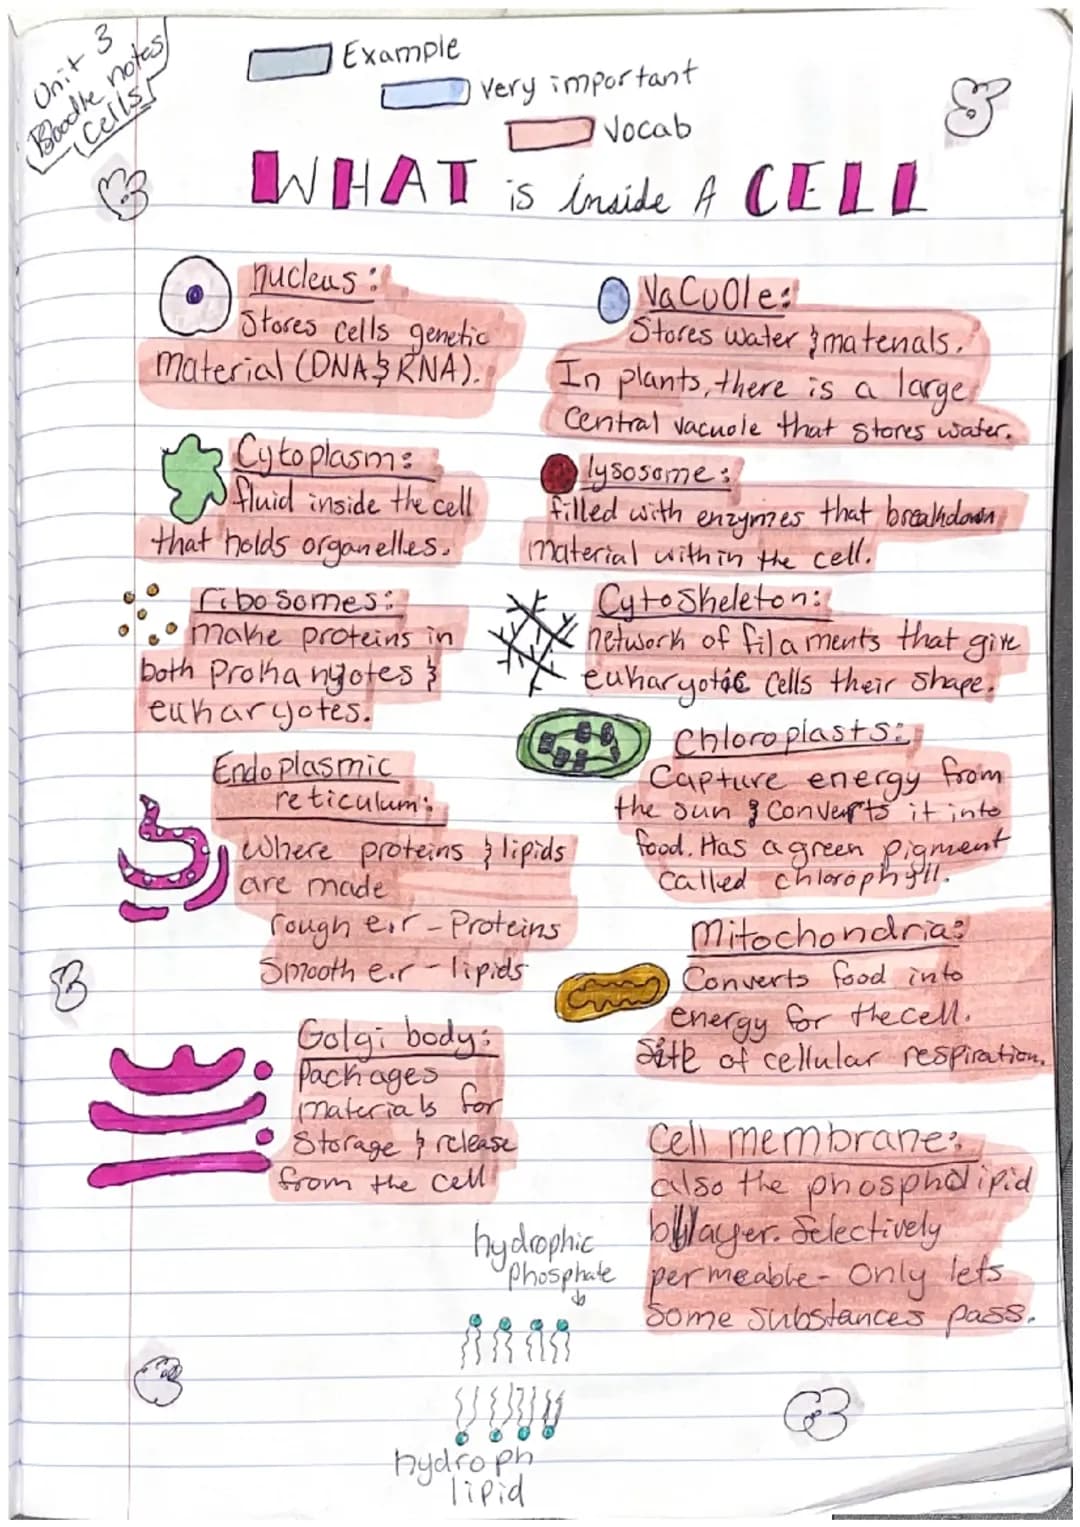 Unit 3
Doodle notes
Cells
Example
very important
Vocab
WHAT is inside A CELL
nucleus:
Stores cells genetic
material (DNA & RNA).
Cytoplasm:
fluid inside the cell
that holds organelles.
ribosomes:
make proteins in
both Prokaryotes &
eukaryotes.
Endoplasmic
reticulum:
Where proteins & lipids
are made
rough e.r - Proteins
Smooth e.r - lipids
Golgi body:
Packages
materials for
Storage & release
from the cell
Vacuole:
Stores water & materials.
In plants, there is a large
Central vacuole that stores water.
lysosome:
filled with enzymes that breakdown
material within the cell.
Cytoskeleton:
network of filaments that give
eukaryotic cells their shape.
Chloroplasts:
Capture energy from
the sun & Converts it into
food. Has a green pigment
called chlorophyll.
Mitochondria:
Converts food into
energy for the cell.
Site of cellular respiration.
Cell membrane:
also the phospholipid
bilayer. Selectively
permeable - Only lets
Some substances pass.
hydrophic
Phosphate
hydroph
lipid